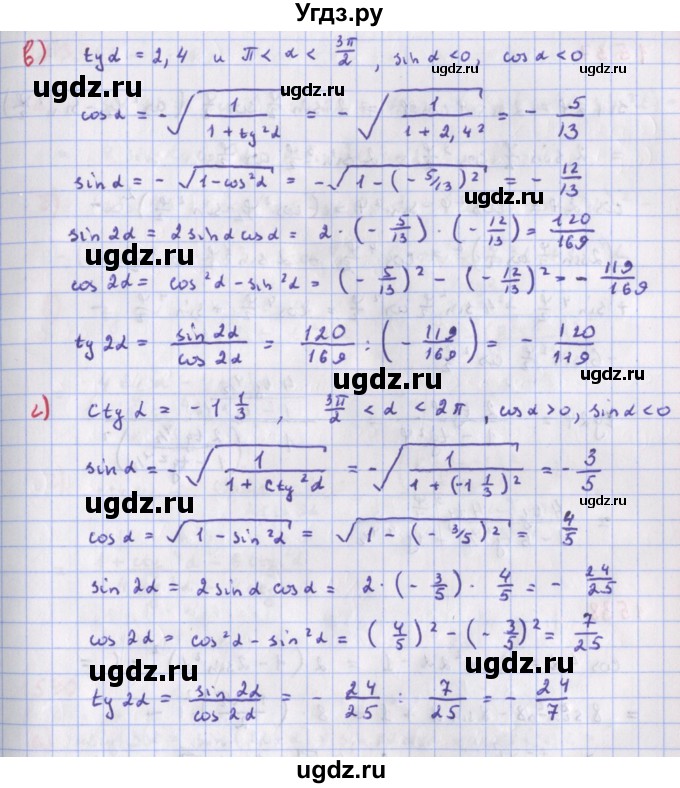 Угдз.ру
в) tg α = 2,4 и π < α < 3π/2 , sin α < 0, cos α < 0
ugdz.ru ugdz.ru
cos α = -√(1/(1 + tg²α)) = -√(1/(1 + 2,4²)) = - 5/13
sin α = - √(1-cos²α) = -√(1-(- 5/13)²) = - 12/13
ugdz.ru
sin 2α = 2 sin α cos α = 2 · (- 5/13) · (- 12/13) = 120/169
ugdz.ru
cos 2α = cos²α - sin²α = (- 5/13)² - (- 12/13)² = - 119/169
tg 2α = sin 2α/cos 2α = 120/169 : (- 119/169) = - 120/119
ugdz.ru
г) ctg α = -1 1/3 , 3π/2 < α < 2π , cos α > 0, sin α < 0
sin α = -√(1/(1 + ctg²α)) = -√(1/(1 + (-1 1/3)²)) = - 3/5
ugdz.ru ugdz.ru
cos α = √(1 - sin²α) = √(1 - (- 3/5)²) = 4/5
ugdz.ru
sin 2α = 2 sin α cos α = 2 · (- 3/5) · 4/5 = - 24/25
ugdz.ru
cos 2α = cos²α - sin²α = (4/5)² - (- 3/5)² = 7/25
ugdz.ru
tg 2α = sin 2α/cos 2α = - 24/25 : 7/25 = - 24/7
ugdz.ru ugdz.ru
ugdz.ru